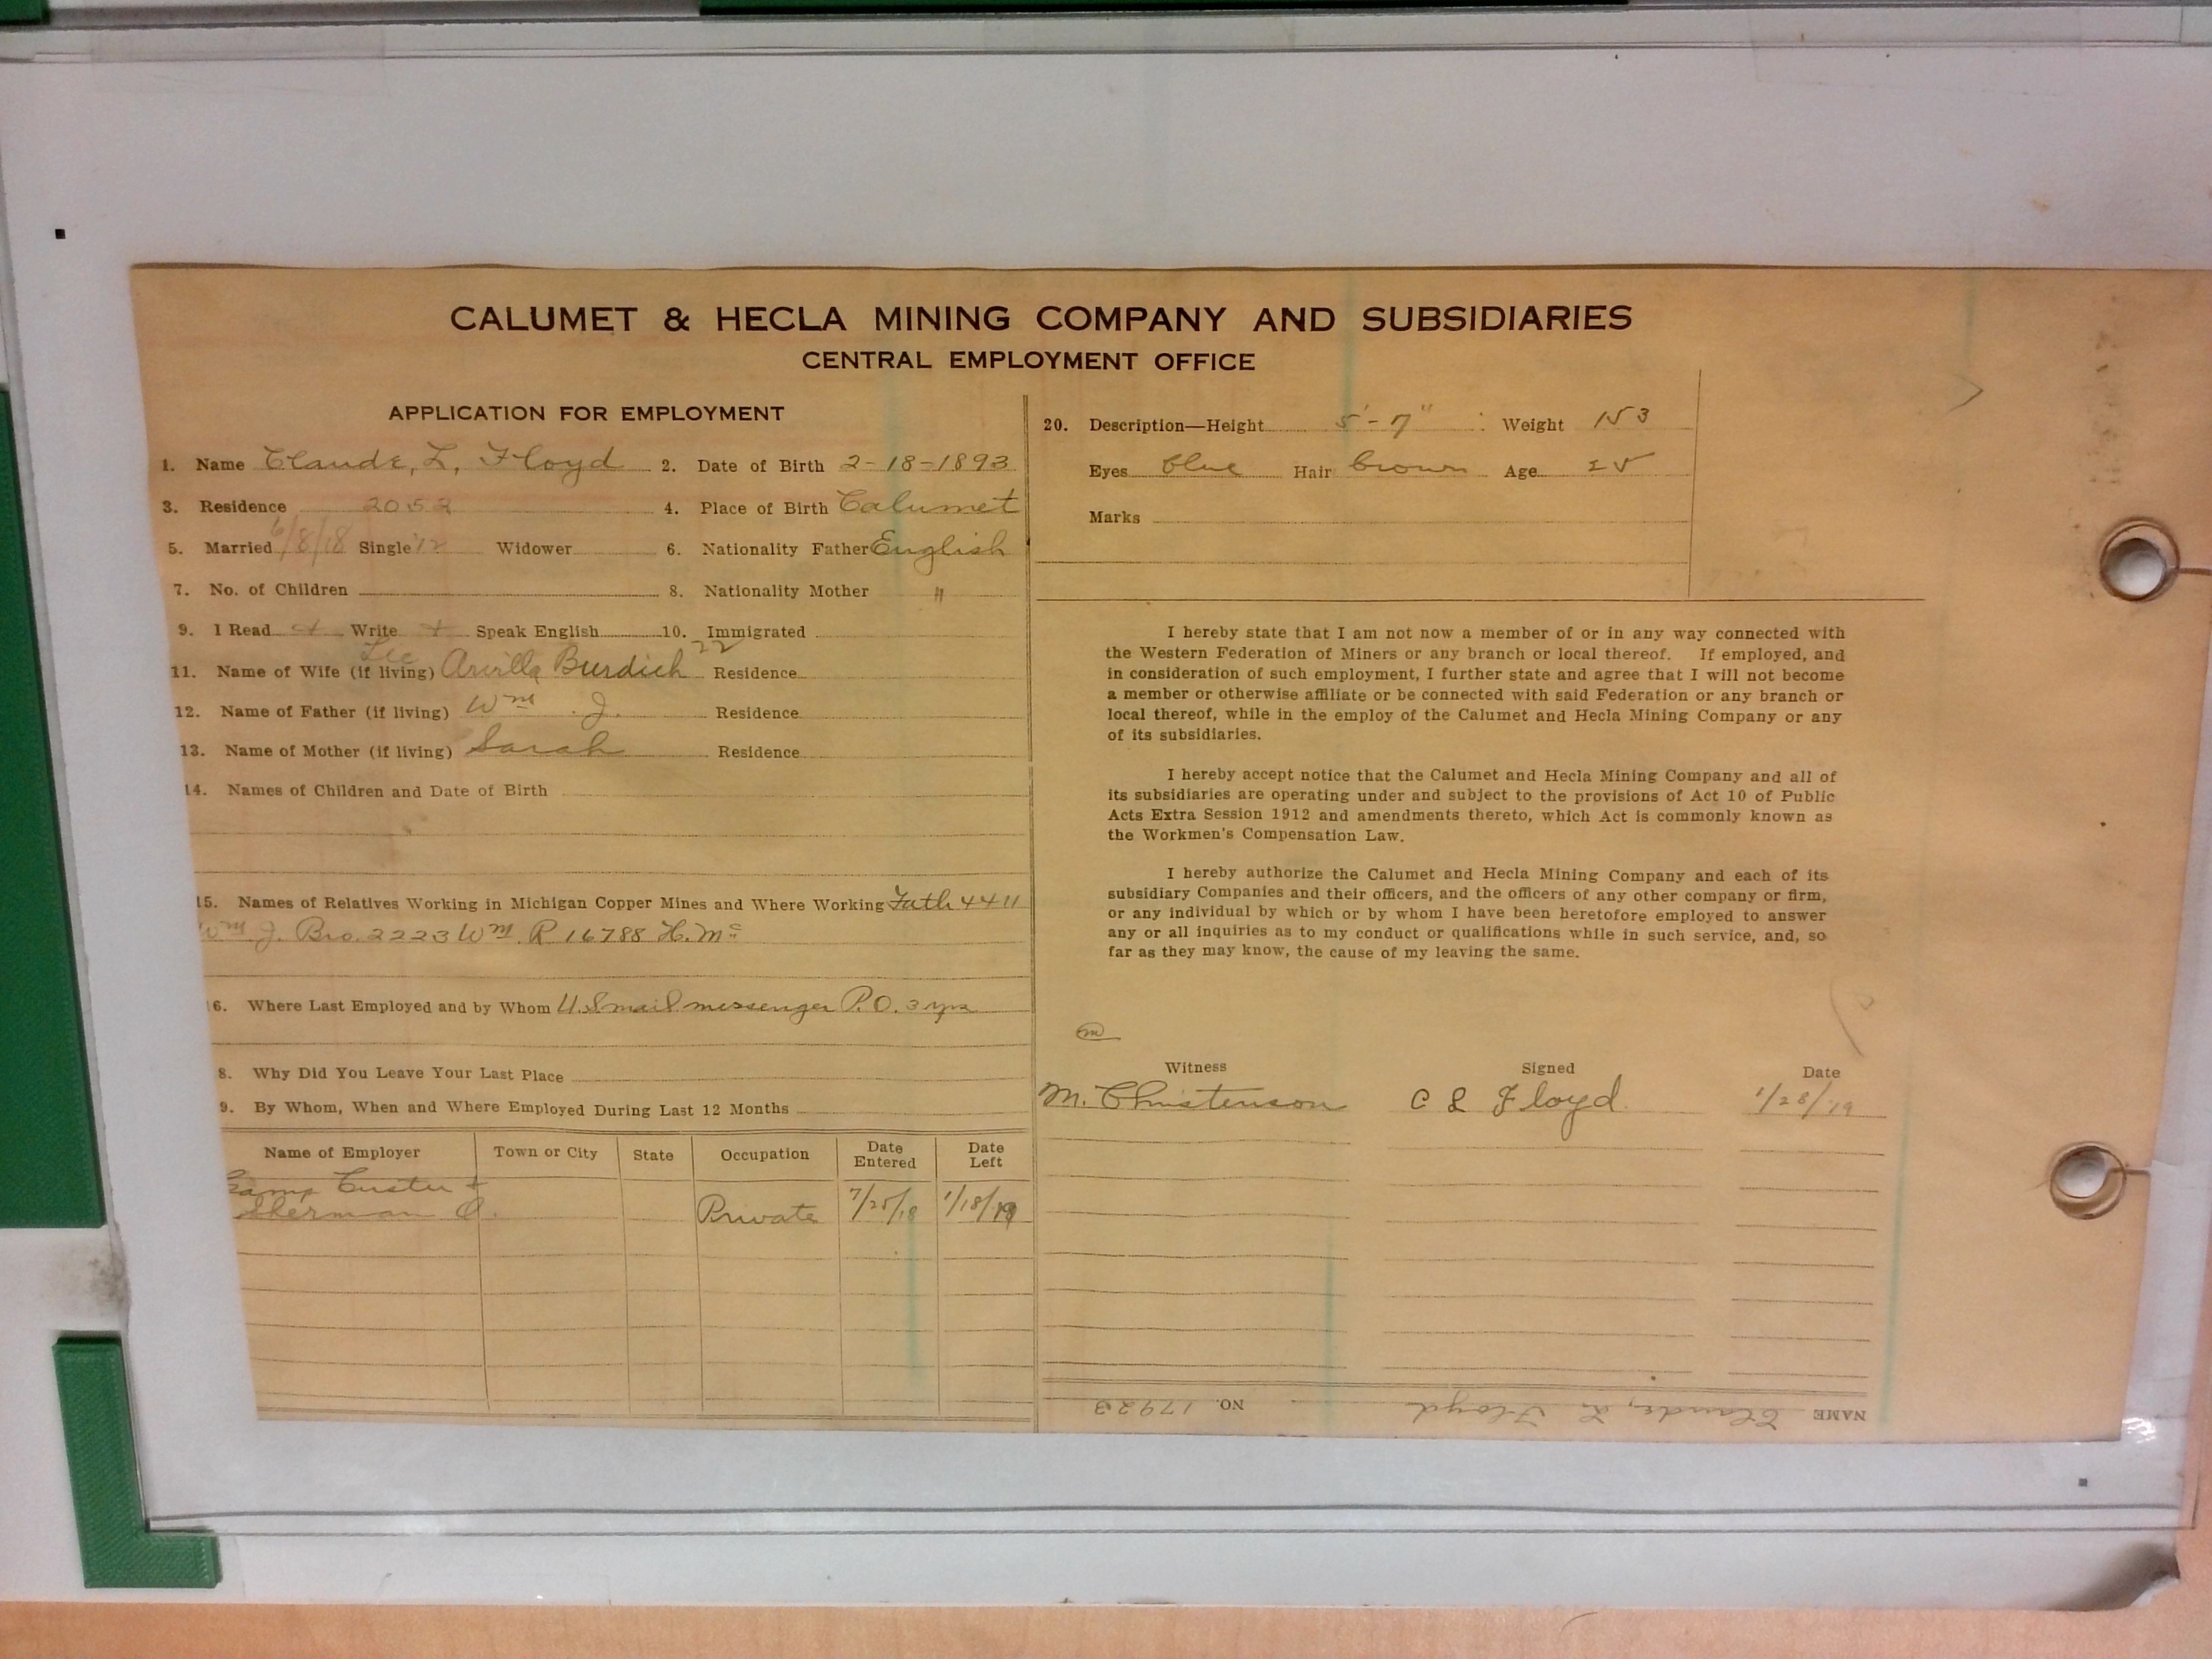 CALUMET & HECLA MINING COMPANY AND SUBSIDIARIES
CENTRAL EMPLOYMENT OFFICE
APPLICATION FOR EMPLOYMENT
1. Name Claude, L, Floyd 2. Date of Birth 2-18-1893
3. Residence 2052 4. Place of Birth Calumet
5. Married 6/8/18 Single Widower 6. Nationality Father English
7. No. of Children 8. Nationality Mother "
9. I Read + Write + Speak English 10. Immigrated
22
Lee
11. Name of Wife (if living) Arvilla Burdick Residence
12. Name of Father (if living) Wm. J. Residence
13. Name of Mother (if living) Sarah Residence
14. Names of Children and Date of Birth
15. Names of Relatives Working in Michigan Copper Mines and Where Working Fath. 4411
Wm J. Bro. 2223 Wm. R 16788 H. Mc
16. Where Last Employed and by Whom U.S mail messenger P.O. 3 yrs
8. Why Did You Leave Your Last Place
9. By Whom, When and Where Employed During Last 12 Months
Name of Employer Town or City State Occupation Date Entered Date Left
Camp Custer +
Sherman O. Private 7/25/18 1/18/19
20. Description—Height 5'-7" Weight 153
Eyes blue Hair brown Age 25
Marks
I hereby state that I am not now a member of or in any way connected with
the Western Federation of Miners or any branch or local thereof. If employed, and
in consideration of such employment, I further state and agree that I will not become
a member or otherwise affiliate or be connected with said Federation or any branch or
local thereof, while in the employ of the Calumet and Hecla Mining Company or any
of its subsidiaries.
I hereby accept notice that the Calumet and Hecla Mining Company and all of
its subsidiaries are operating under and subject to the provisions of Act 10 of Public
Acts Extra Session 1912 and amendments thereto, which Act is commonly known as
the Workmen's Compensation Law.
I hereby authorize the Calumet and Hecla Mining Company and each of its
subsidiary Companies and their officers, and the officers of any other company or firm,
or any individual by which or by whom I have been heretofore employed to answer
any or all inquiries as to my conduct or qualifications while in such service, and, so
far as they may know, the cause of my leaving the same.
m
Witness Signed Date
M. Christenson C L Floyd 1/28/19
NAME Claude, L. Floyd NO. 17923